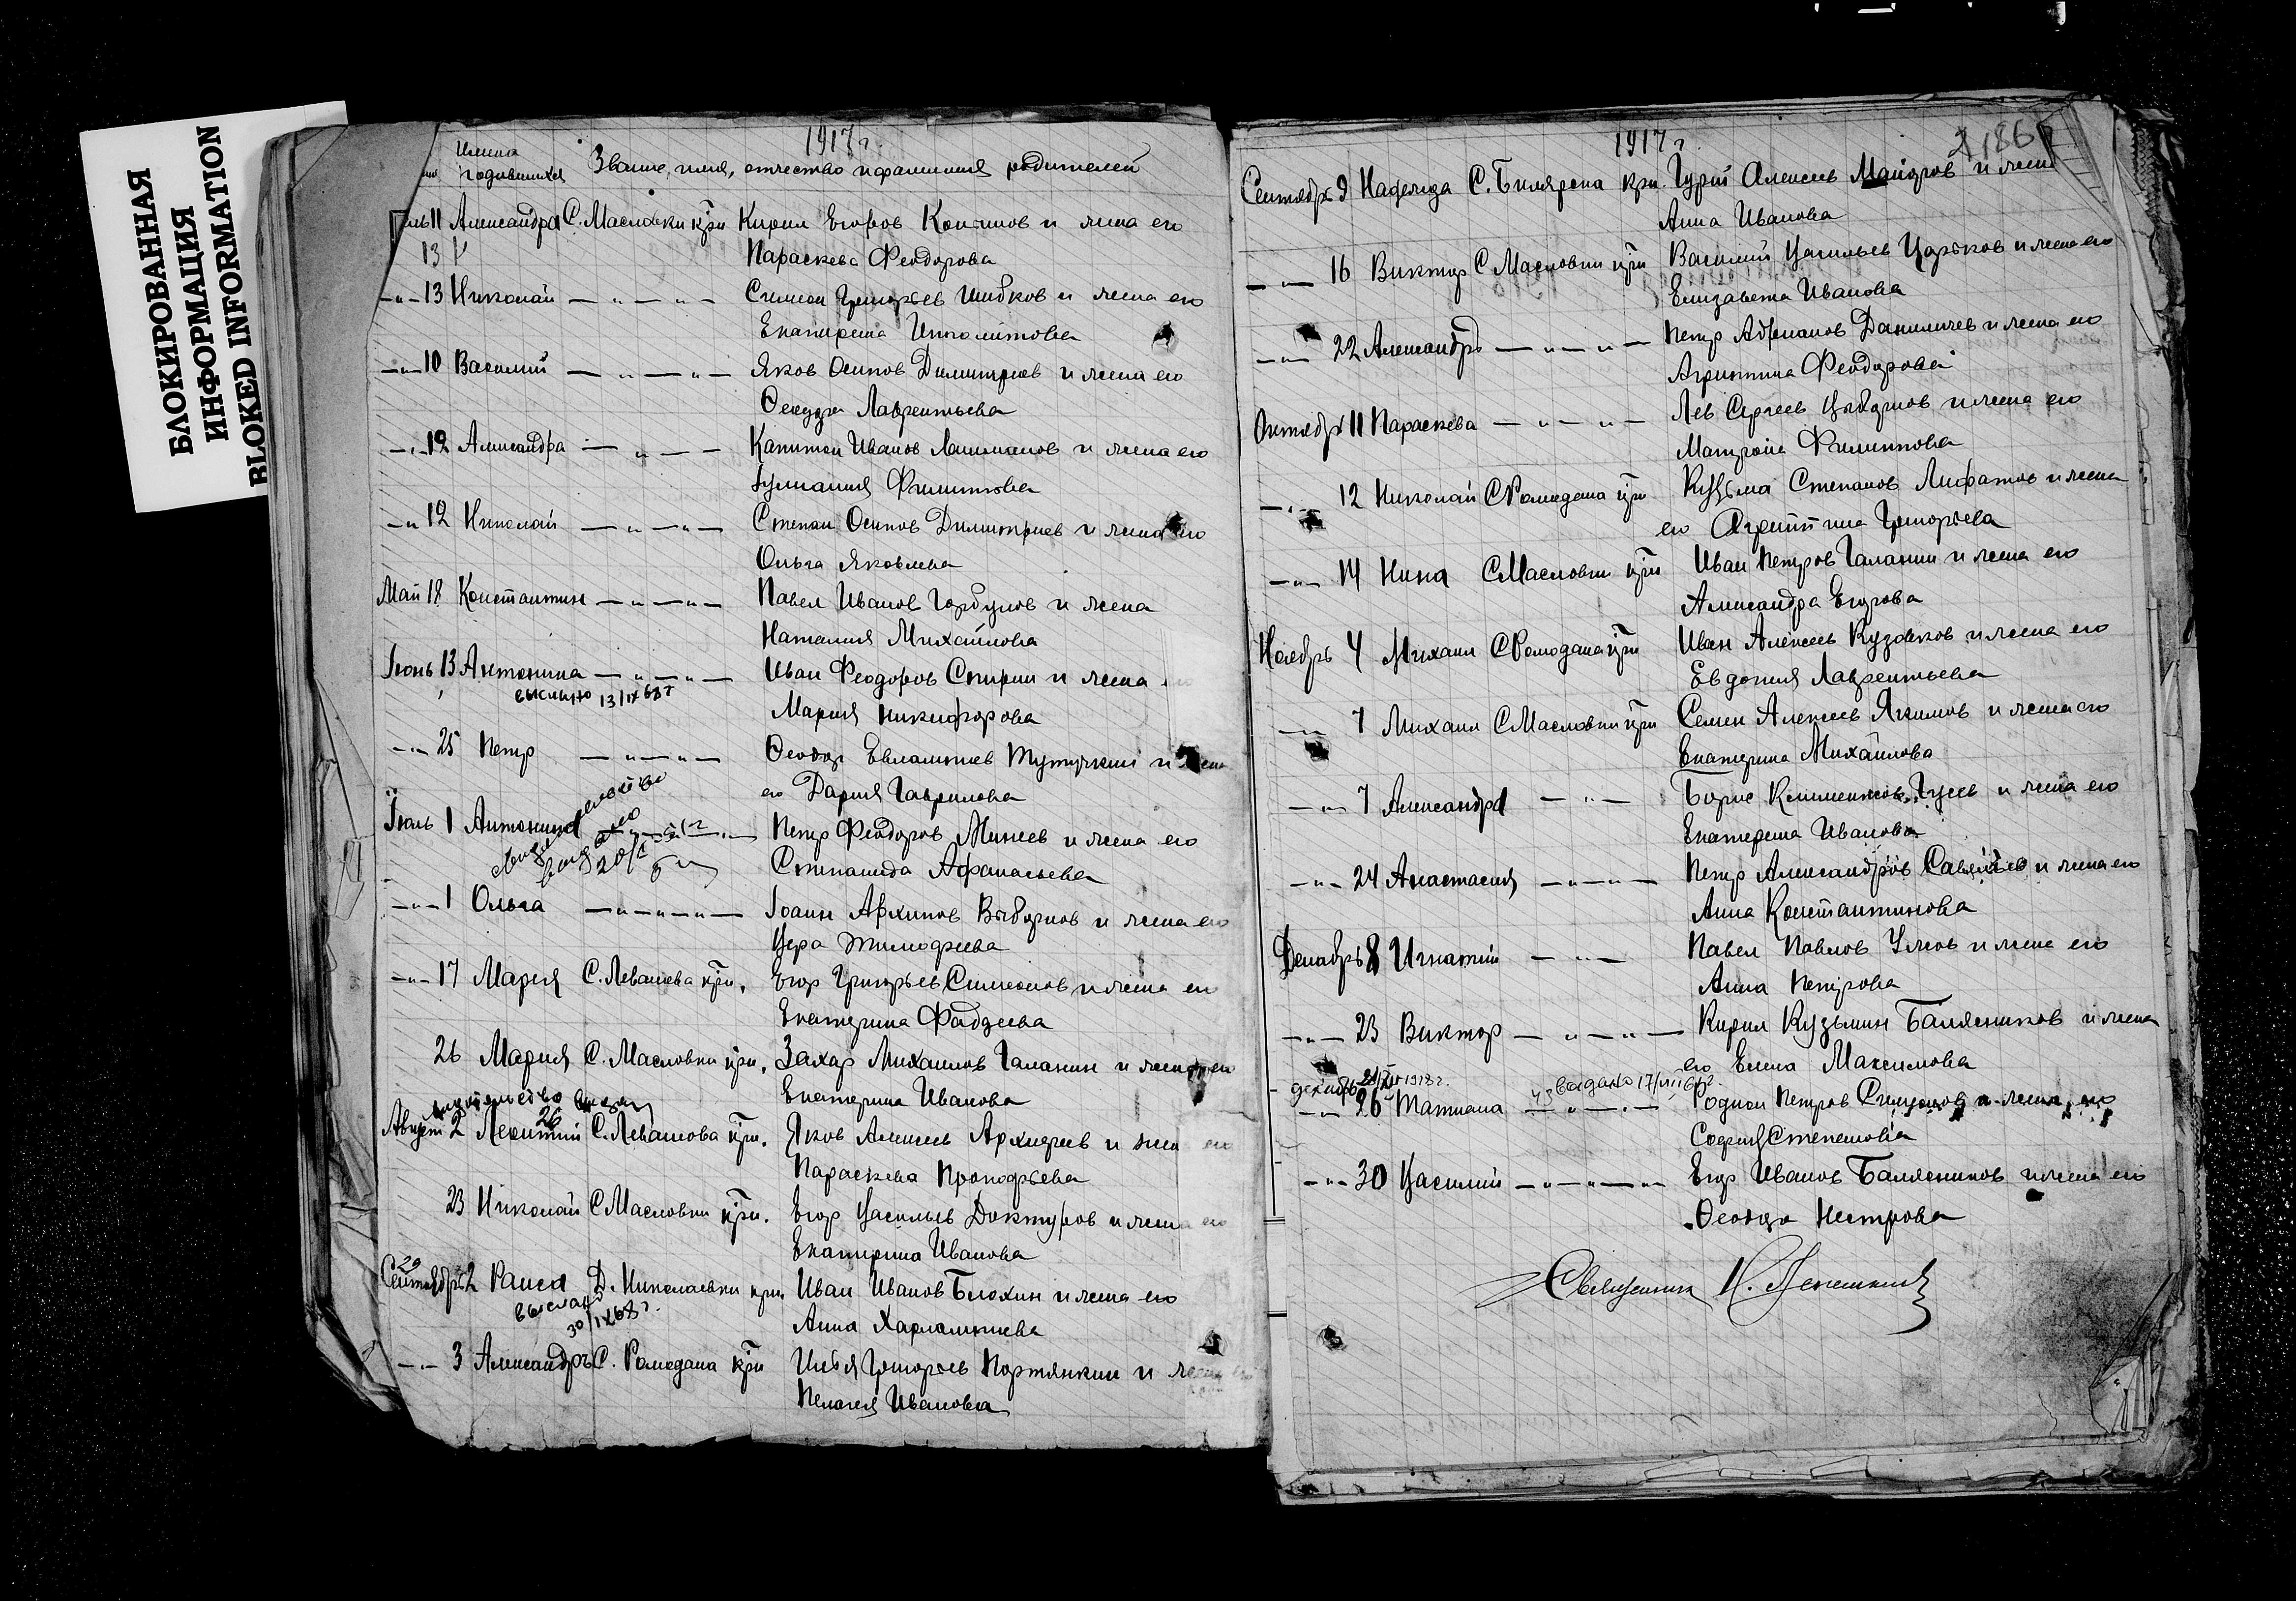 БЛОКИРОВАННАЯ
ИНФОРМАЦИЯ
BLOKED INFORMATION
1917 г.
Имена
родившихся Звание, имя, отчество и фамилия родителей
11 Александра С. Масловки кр-н Кирил Егоров и жена его
13 Параскева Феодорова
—"— 13 Николай —"—"— Симеон Григорьев Шибков и жена его
Екатерина Ипполитова
—"— 10 Василий —"—"— Яков Осипов Димитриев и жена его
Лаврентьева
—"— 12 Александра —"—— Капитон Иванов и жена его
Иулиания Филиппова
—"— 12 Николай —"—"— Степан Осипов Димитриев и жена его
Ольга Яковлева
Май 18 Константин —"—"— Павел Иванов Горбунов и жена
Наталия Михайлова
Іюнь 13 Антонина —"—"— Иван Феодоров Спирин и жена его
выслано 13/IX 68 г
Мария Никифорова
—"— 25 Петр —"—"— Феодор Евлампиев и жена
его Дария Гаврилова
Іюль 1 Антонина —"— Петр Феодоров Минеев и жена его
Свидетельство
Степанида Афанасьева
—"— 1 Ольга —"—"—"— Іоанн Архипов Выборнов и жена его
Вера Тимофеева
—"— 17 Мария С. Левашева кр-н. Егор Григорьев Симеонов и жена его
Екатерина Фаддеева
26 Мария С. Масловки кр-н. Захар Михаилов Галанин и жена его
Екатерина Иванова
Август 2 Леонтий С. Левашова кр-н. Яков Алексеев и жена его
Параскева Прокофьева
23 Николай С Масловки кр-н. Егор Васильев Доктуров и жена его
Екатерина Иванова
20
Сентябрь 2 Раиса Д. Николаевки кр-н. Иван Иванов Блохин и жена его
выслано
30/IX 68 г.
Анна Харлампиева
—"— 3 Александръ С. Ромодана кр-н Илья Григорьев Портянкин и жена
Пелагея Иванова
1917 г.
186
Сентябрь 9 Надежда С. Билярска кр-н. Гурий Алексеев Майоров и жена
Анна Иванова
—"— 16 Виктор С Масловки кр-н Василий Васильев Царьков и жена его
Елизавета Иванова
—"— 22 Александръ —"—"— Петр Адрианов Данилычев и жена его
Агрипина Феодорова
Октябрь 11 Параскева —"—"— Лев Сергеев Выборнов и жена его
Матрона Филиппова
—"— 12 Николай С Ромодана кр-н Кузьма Степанов и жена
его Агриппина Григорьева
—"— 14 Нина С Масловки кр-н Иван Петров Галанин и жена его
Александра Егорова
Ноябрь 4 Михаил С Ромодана кр-н Иван Алексеев Кузовков и жена его
Евдокия Лаврентьева
—"— 7 Михаил С Масловки кр-н Семен Алексеев Якимов и жена его
Екатерина Михайлова
—"— 7 Александра —"— Борис Климентов Гусев и жена его
Екатерина Иванова
—"— 24 Анастасия —"—"— Петр Александров и жена его
Анна Константинова
Декабрь 8 Игнатий —"— Павел Павлов и жена его
Анна Петрова
—"— 23 Виктор —"—"— Кирил Кузьмин Балясников и жена
его Елена Максимова
декабрь 1918 г. выдано 17/VIII
—"— 26 Татиана —"—"— Родион Петров и жена его
София Степанова
—"— 30 Василий —"—"—"— Егор Иванов Балясников и жена его
Нестрова
Священник Н.